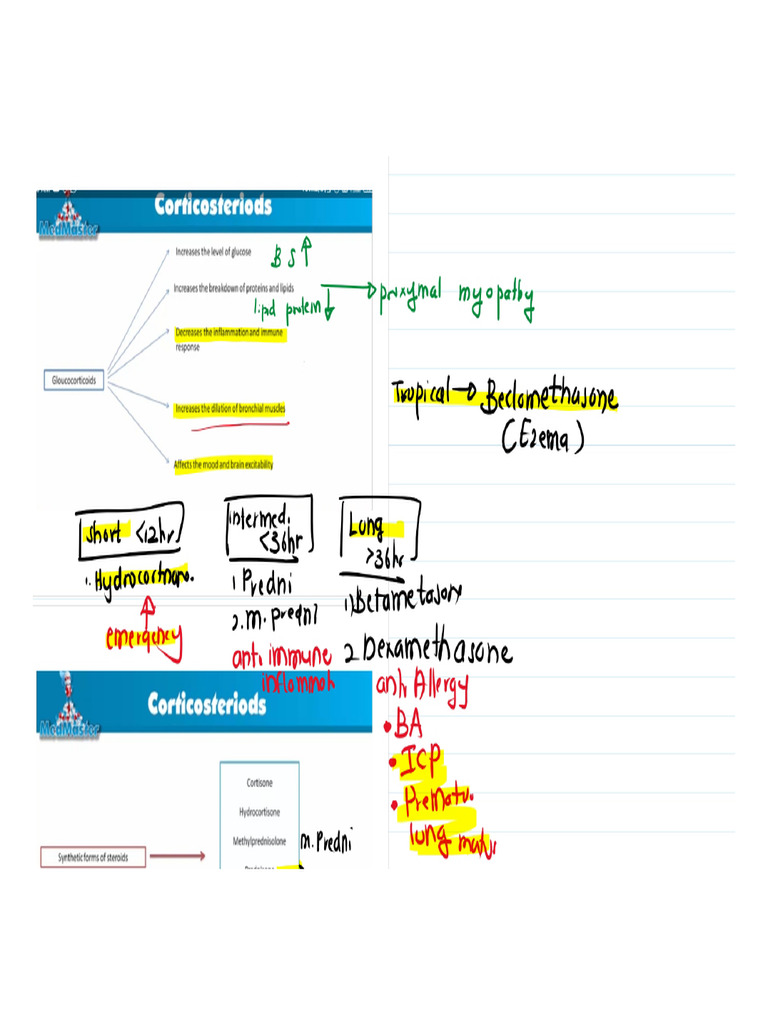 Corticosteriods
MedMaster
Increases the level of glucose
BS↑
Increases the breakdown of proteins and lipids
→ proxymal myopathy
lipid protein ↓
Decreases the inflammation and immune
response
Gloucocorticoids
Increases the dilation of bronchial muscles
Affects the mood and brain excitability
Tropical → Beclomethasone
(Ezema)
Short <12hr
1. Hydrocortison.
↑
emergency
intermed.
<36hr
1 Predni
2. m. predni
anti immune
inflammat
Long
>36hr
1) Betametasony
2 Dexamethasone
anti Allergy
• BA
• ICP
• Prematu.
lung matu.
Corticosteriods
MedMaster
Cortisone
Hydrocortisone
Methylprednisolone
m. Predni
Synthetic forms of steroids